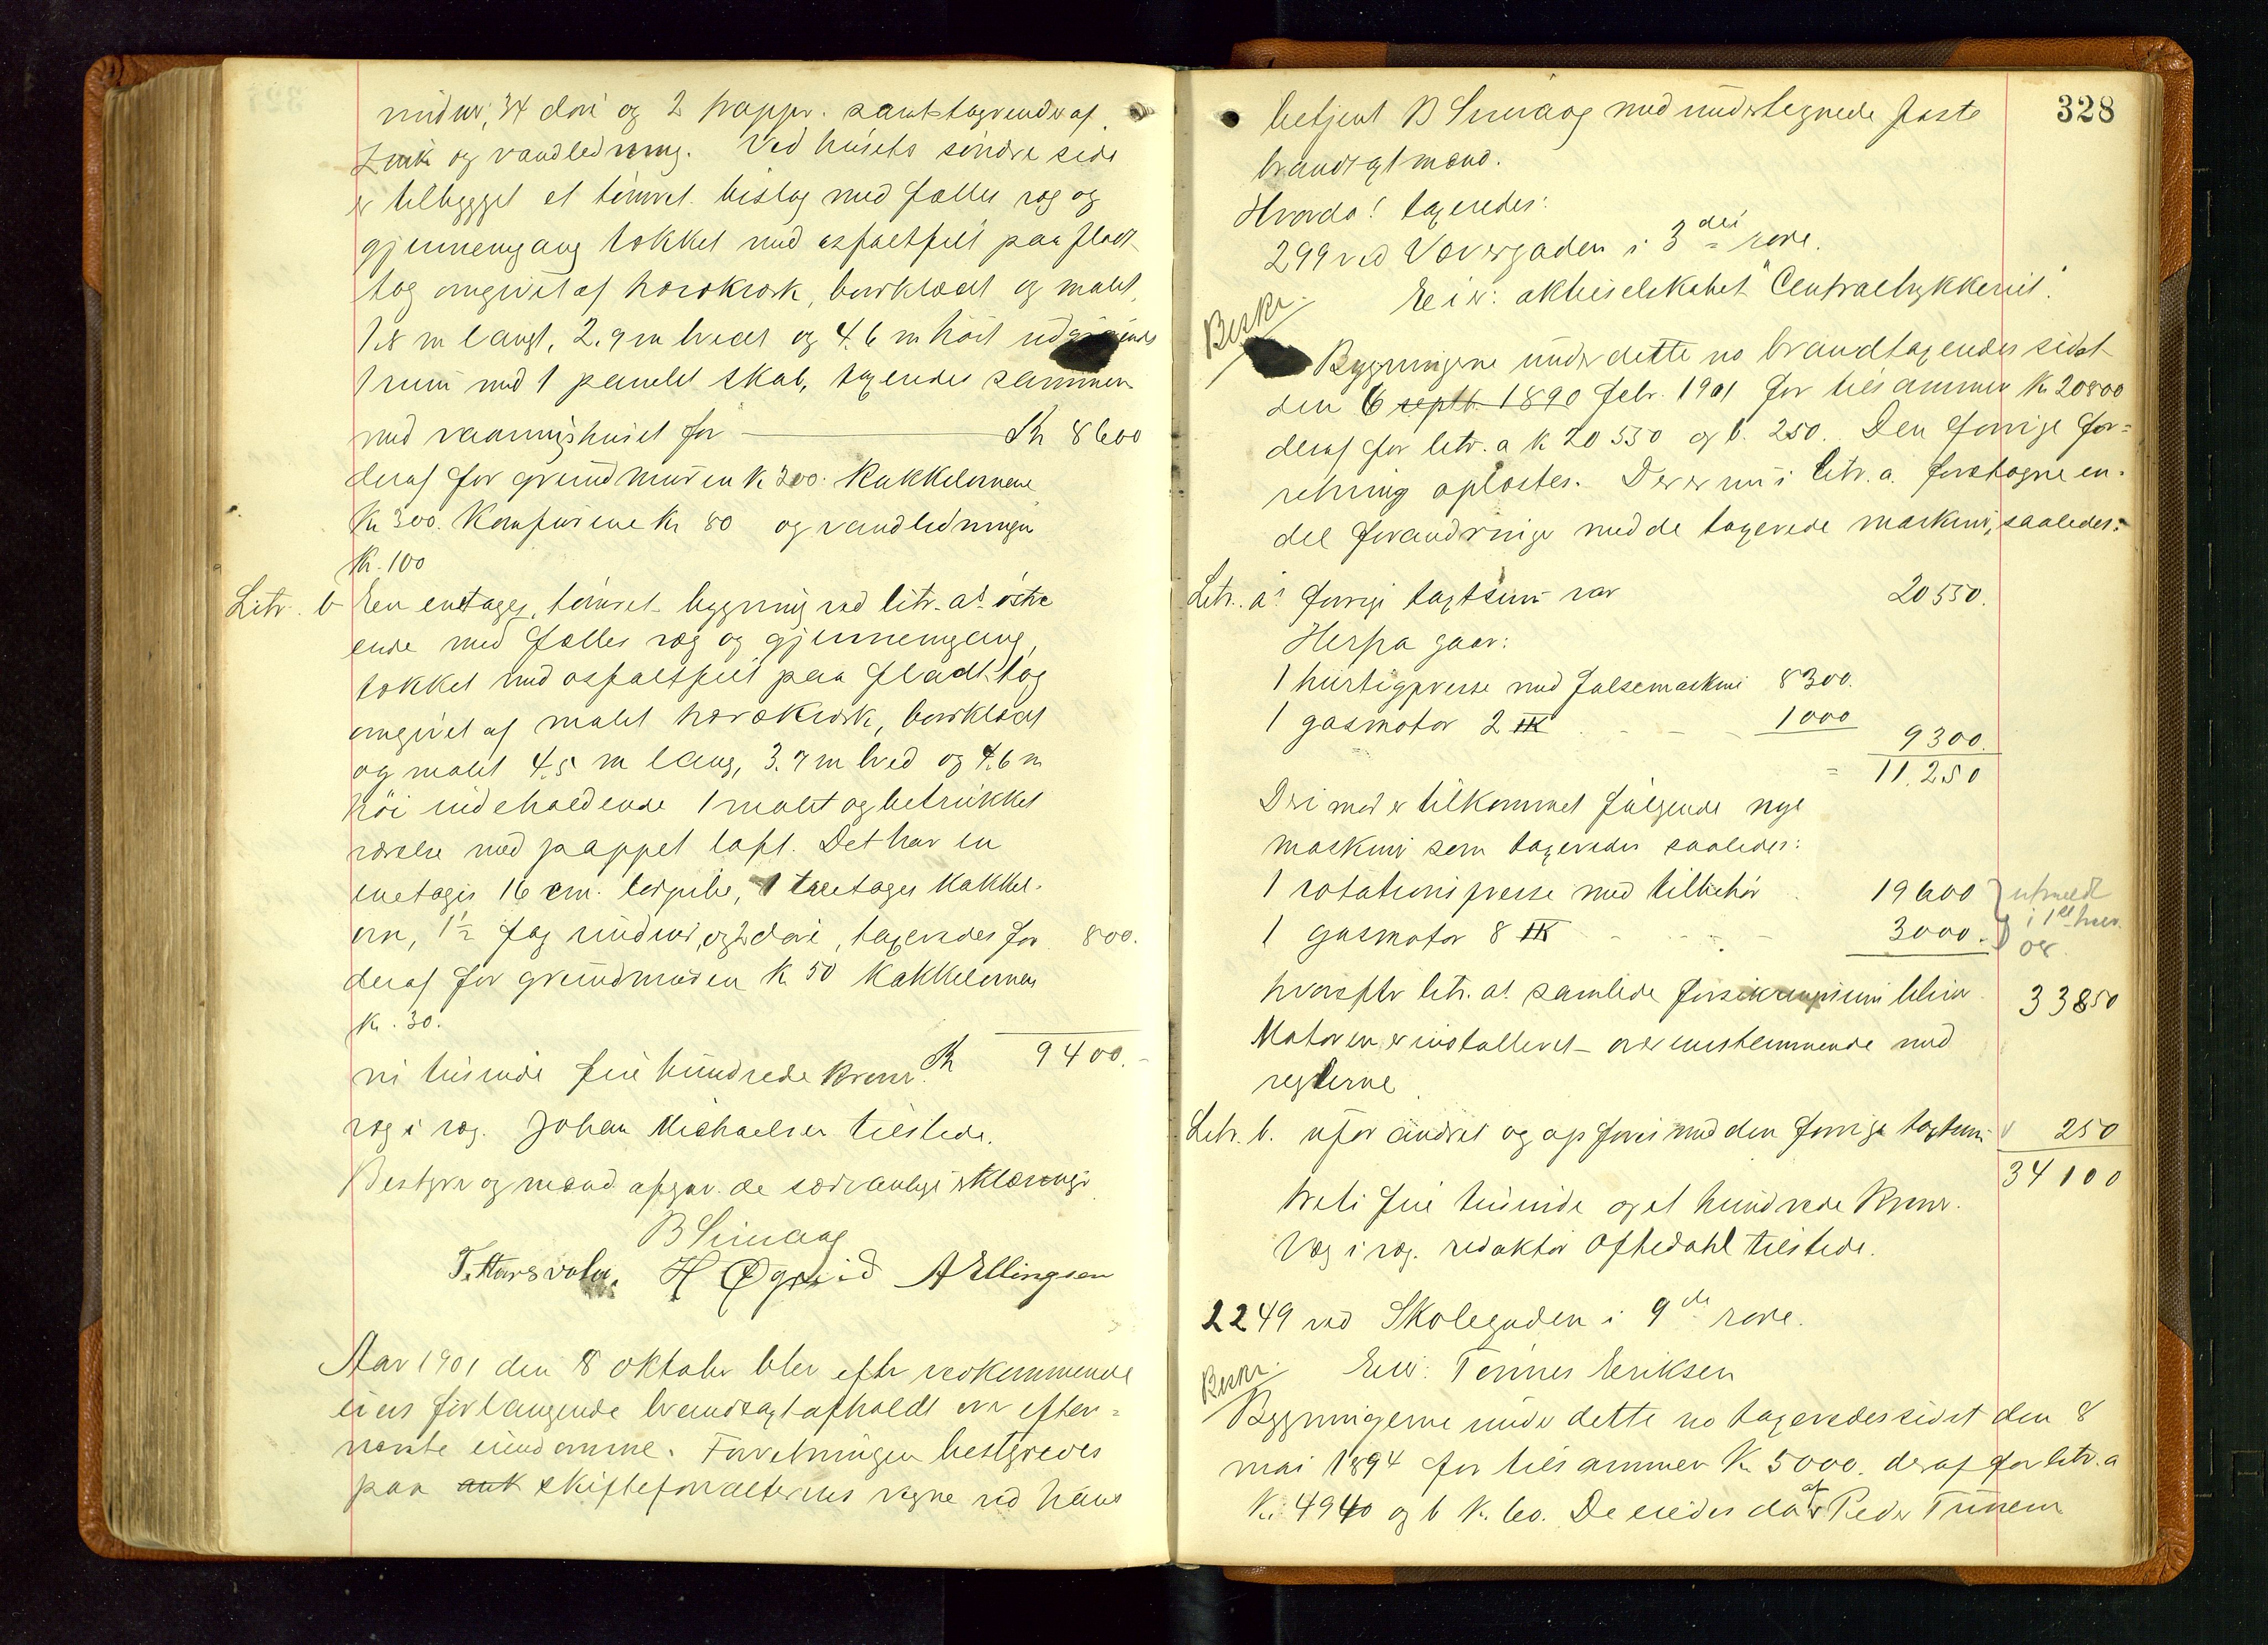 vinduer, 34 døre og 2 trapper. samt tagrender af
Zink og vandledning. Ved husets søndre side
er tilbygget et tømret bislag med fælles væg og
gjennemgang tækket med asfaltfilt paa fladt
tag omgivet af bordklædt og malet,
1.8 m langt, 2.9 m bredt og 4.6 m høit
1 rum med 1 panelet skab, taxeredes sammen
med vaaningshuset for Kr 8600
deraf for grundmuren kr 300. Kakkelovnene
Kr 300. Komfurene Kr 80 og vandledningen
Kr. 100
Litr. b En enetages, tømret bygning ved litr. a's østre
ende med fælles væg og gjennemgang,
tækket med asfaltfilt paa fladt tag
omgivet af malet bordklædt
og malet 4.5 m lang, 3.7 m bred og 4.6 m
høi indeholdende 1 malet og betrukket
værelse med pappet loft. Det har en
enetages 16 cm. 1 toetages Kakkel-
ovn, 1½ fag vinduer, og 2 døre, taxeredes for 800.
deraf for grundmuren Kr 50 Kakkelovnen
Kr. 30.
Kr 9400.-
ni tusinde fire hundrede kroner.
væg i væg. Johan Michaelsen tilstede.
Bestyrer og mænd afgav de sædvanlige erklæringer
B Simaog
T. Harsvola. H Øgreid A Ellingsen
Aar 1901 den 8 oktober blev efter vedkommende
eiers forlangende brandtaxt afholdt over efter-
nævnte eiendomme. Forretningen bestyredes
paa skifteforvalterens vegne ved hans
328
betjent B Simaog med undertegnede faste
brandtaxtmænd.
Hvorda! taxeredes:
299 ved Vovergaden i 3die rode.
Eier: aktieselskabet "Centraltrykkeriet".
Beskr.
Bygningerne under dette no brandtaxeredes sidst
den 6 septb. 1890 febr. 1901 for tilsammen Kr 20800
deraf for litr. a kr 20550 og b. 250. Den forrige for-
retning oplæstes. Der er nu i litr. a. foretagne en-
del forandringer med de taxerede maskiner, saaledes:
Litr. a's forrige taxtsum var 20550.
Herfra gaar:
1 hurtigpresse med falsemaskine 8300.
1 gasmotor 2 HK 1000
9300.
= 11,250
Derimod er tilkommet følgende nye
maskiner som taxeredes saaledes:
1 rotationspresse med tilbehør 19600
1 gasmotor 8 HK 3000.
utmeldt
i 1ste halv.
08.
hvorefter litr. a's samlede forsikringssum bliver 33850
Motoren er installeret overensstemmende med
reglerne
Litr. b. uforandret og opføres med den forrige taxtsum 250
34100
treti fire tusinde og et hundrede kroner.
Væg i væg. redaktør Oftedahl tilstede.
2249 ved Skolegaden i 9de rode.
Eier: Tønnes Eriksen
Beskr.
Bygningerne under dette no taxeredes sidst den 8
mai 1894 for tilsammen Kr 5000. deraf for litr. a
Kr. 4940 og b Kr. 60. De eiedes da af Peder Tunem